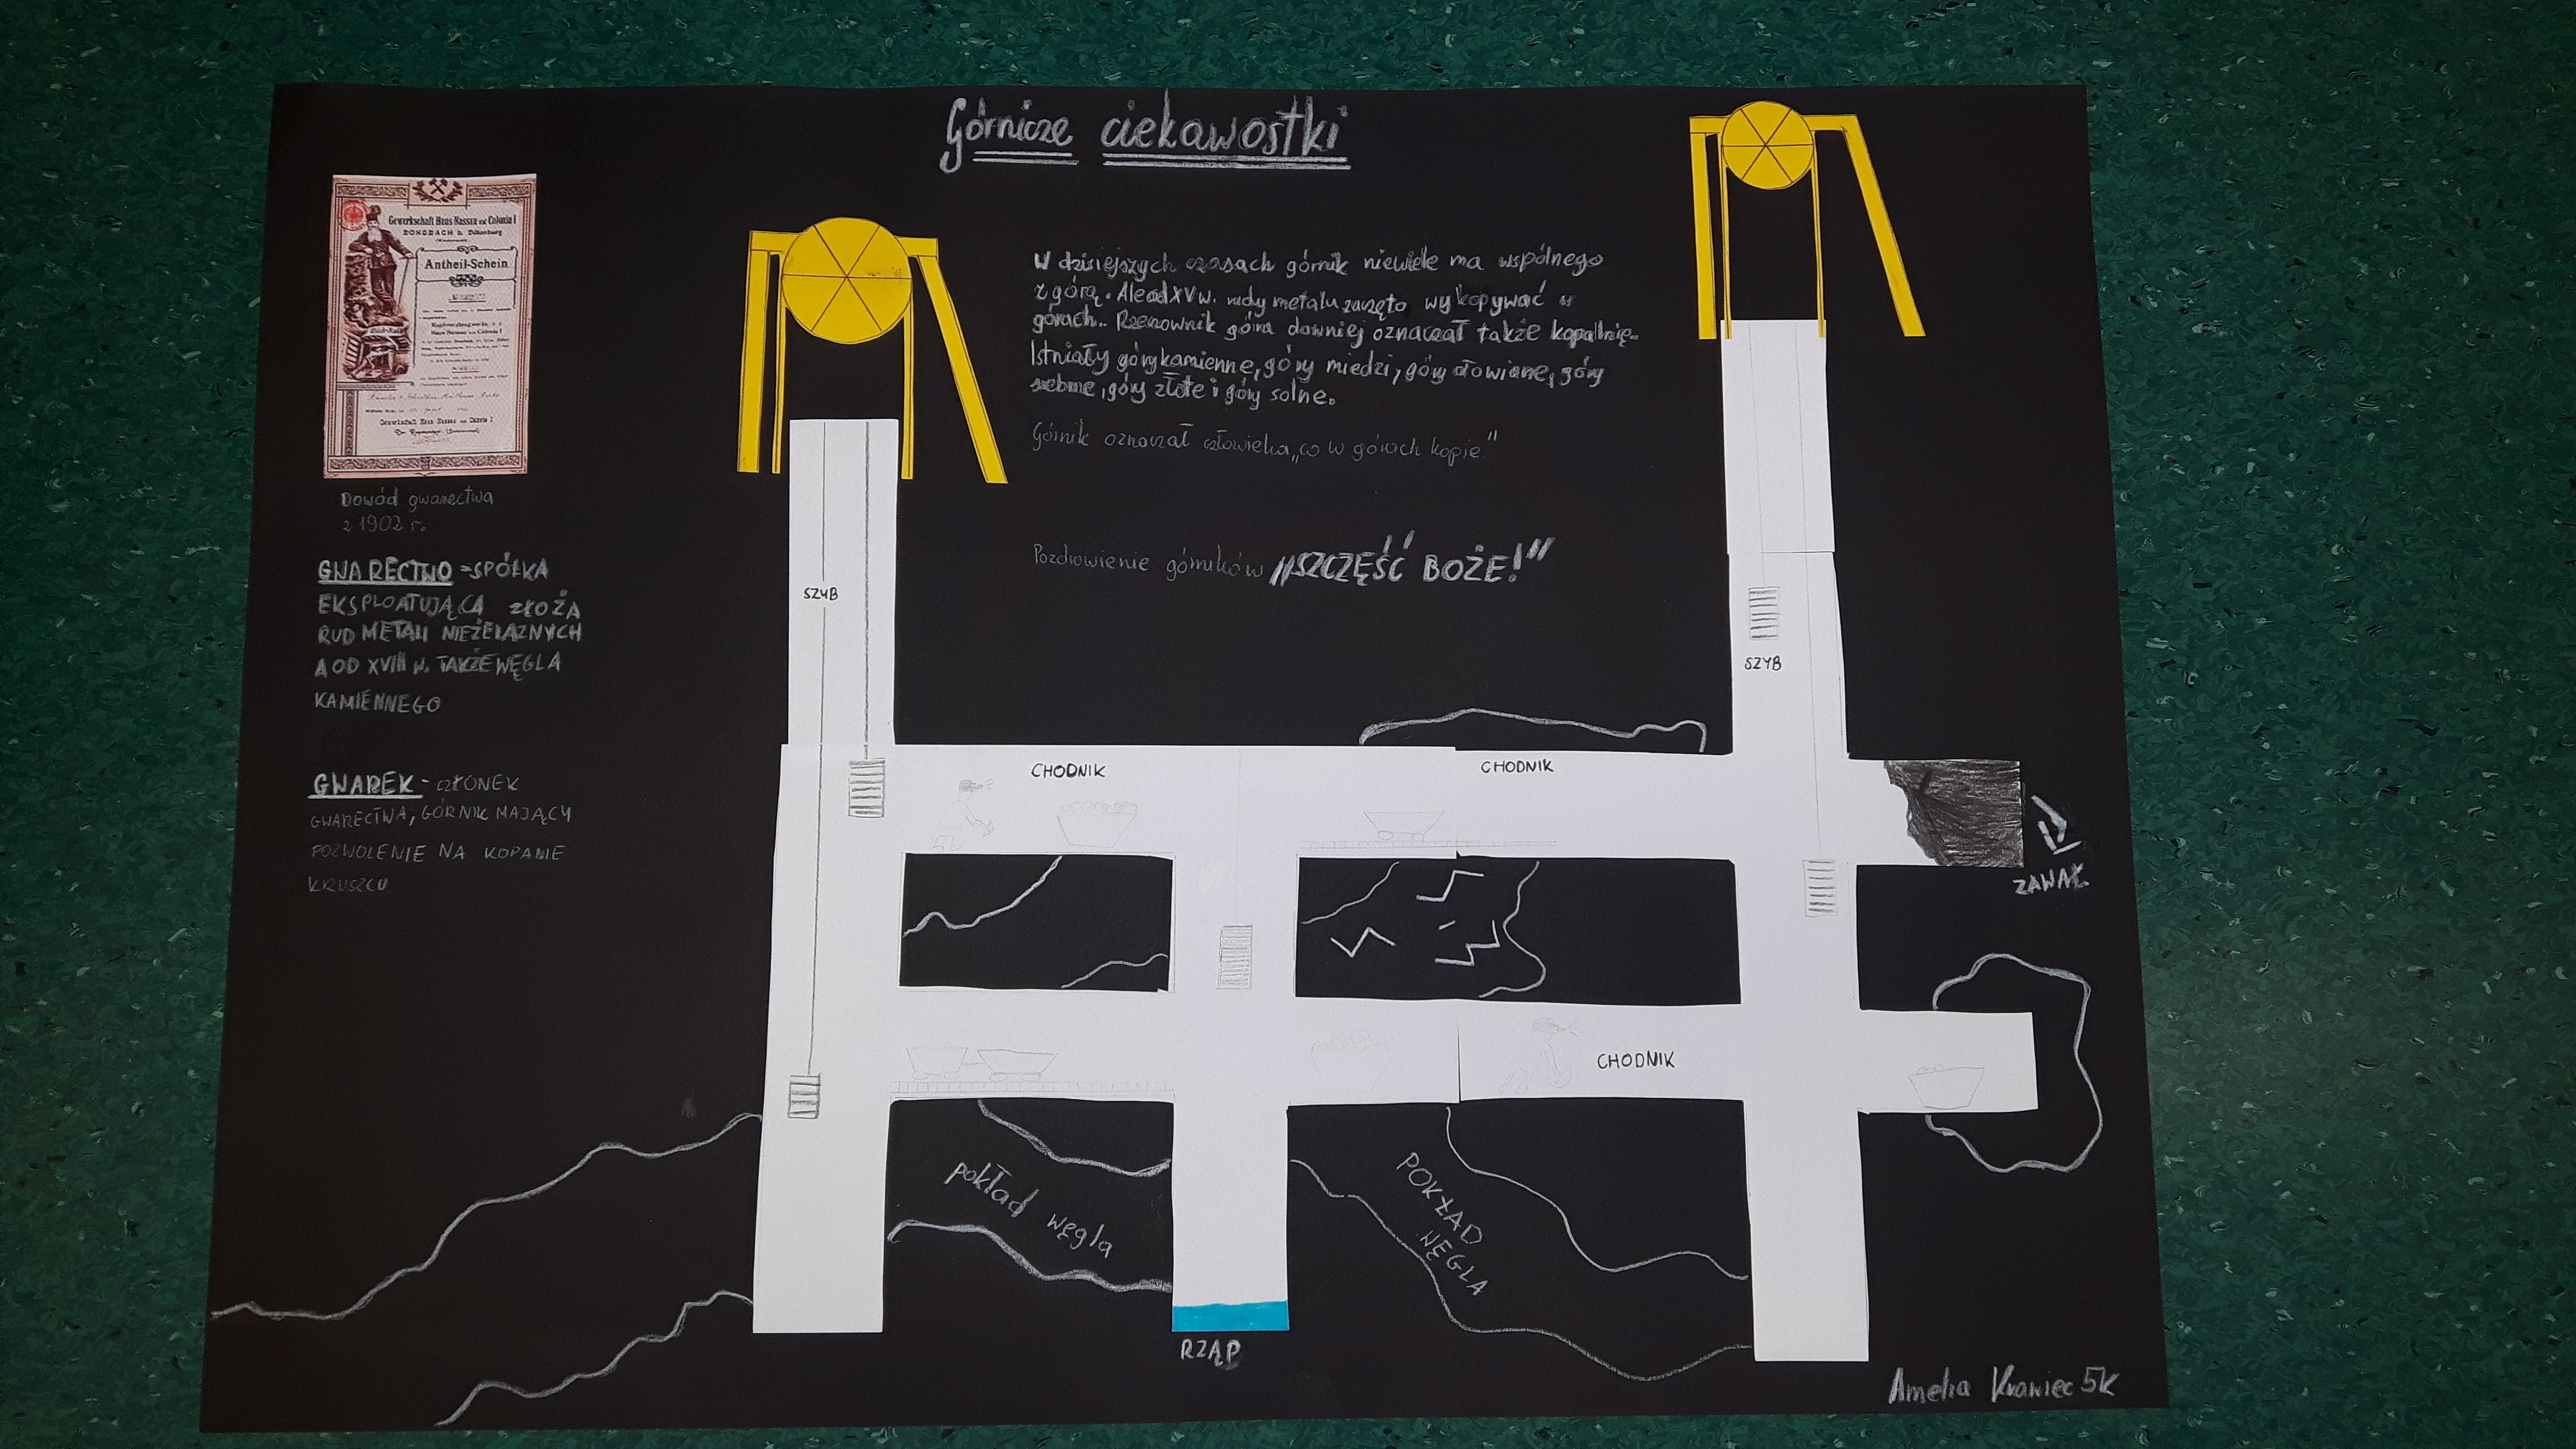 Górnicze ciekawostki
Gewerkschaft Haus Nassau und Colonia I
DONSBACH b. Dillenburg
Antheil-Schein
Kupferbergwerks
Haus Nassau und Colonia I
Gewerkschaft Haus Nassau und Colonia I
Dowód gwarectwa
z 1902 r.
GWARECTWO - SPÓŁKA
EKSPLOATUJĄCA ZŁOŻA
RUD METALI NIEŻELAZNYCH
A OD XVIII W. TAKŻE WĘGLA
KAMIENNEGO
GWAREK - CZŁONEK
GWARECTWA, GÓRNIK MAJĄCY
POZWOLENIE NA KOPANIE
KRUSZCU
W dzisiejszych czasach górnik niewiele ma wspólnego
z górą. Ale od XV w. rudy metalu zaczęto wykopywać w
górach.. Rzeczownik góra dawniej oznaczał także kopalnię.
Istniały góry kamienne, góry miedzi, góry ołowiane, góry
srebrne, góry złote i góry solne.
Górnik oznaczał człowieka „co w górach kopie"
Pozdrowienie górników „SZCZĘŚĆ BOŻE!"
SZYB
SZYB
CHODNIK
CHODNIK
ZAWAŁ
CHODNIK
pokład węgla
POKŁAD
WĘGLA
RZĄP
Amelia Krawiec 5K